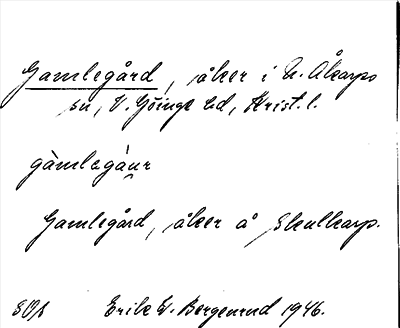 Gamlegård, åker i N. Åkarps
sn, V. Göinge hd, Krist. l.
gàmlegáu̯r
Gamlegård, åker å Skulkarp.
Erik W. Bergenrud 1946.